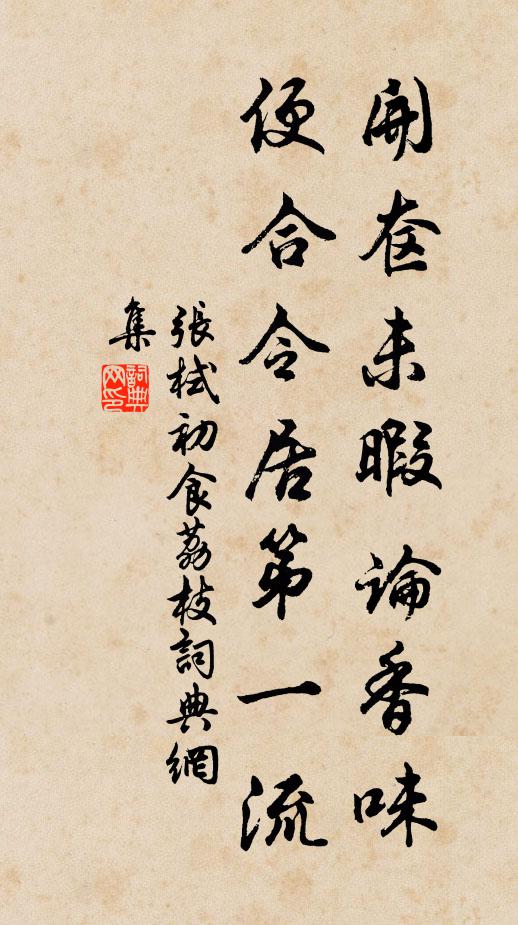 開奁未暇論香味
便合令居第一流
張栻初食荔枝詞典網
集
詞典
网印